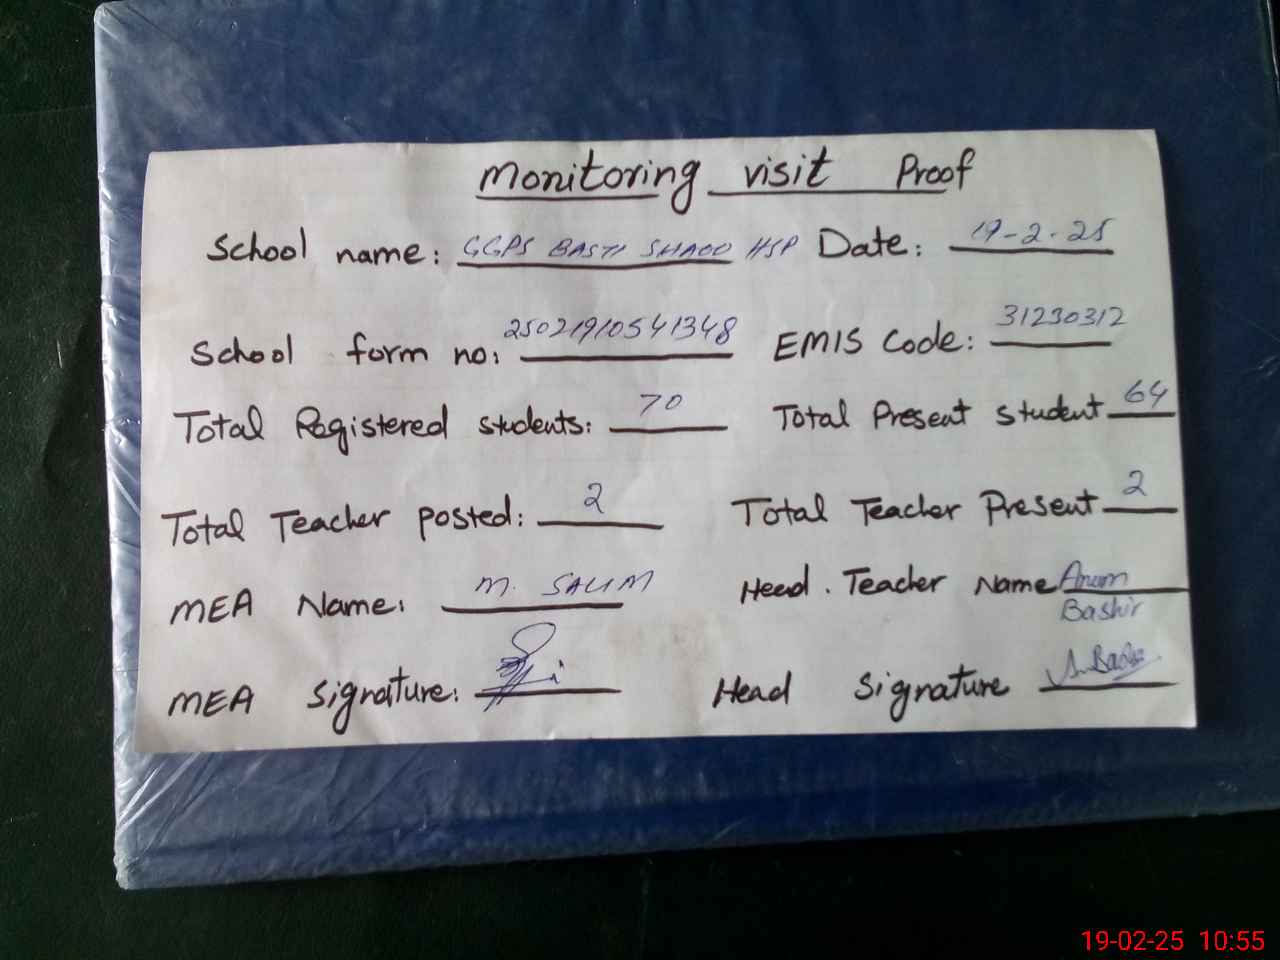 Monitoring visit Proof
School name: GGPS BASTI SHADO HSP Date: 19-2-25
School form no: 25021910541348 EMIS Code: 31230312
Total Registered students: 70 Total Present student 64
Total Teacher posted: 2 Total Teacher Present 2
MEA Name: M. SALIM Head. Teacher Name Anum
Bashir
MEA signature: Head signature A. Bashir
19-02-25 10:55